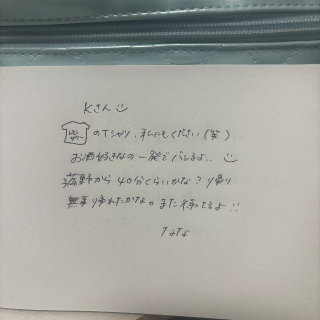 Kさん
レモンサワー
のTシャツ、私にもください(笑)
お酒好きなの一発でバレるよ..
蔵野から40分くらいかな?帰り
無事帰れたかな。また待ってるよ!!
なな